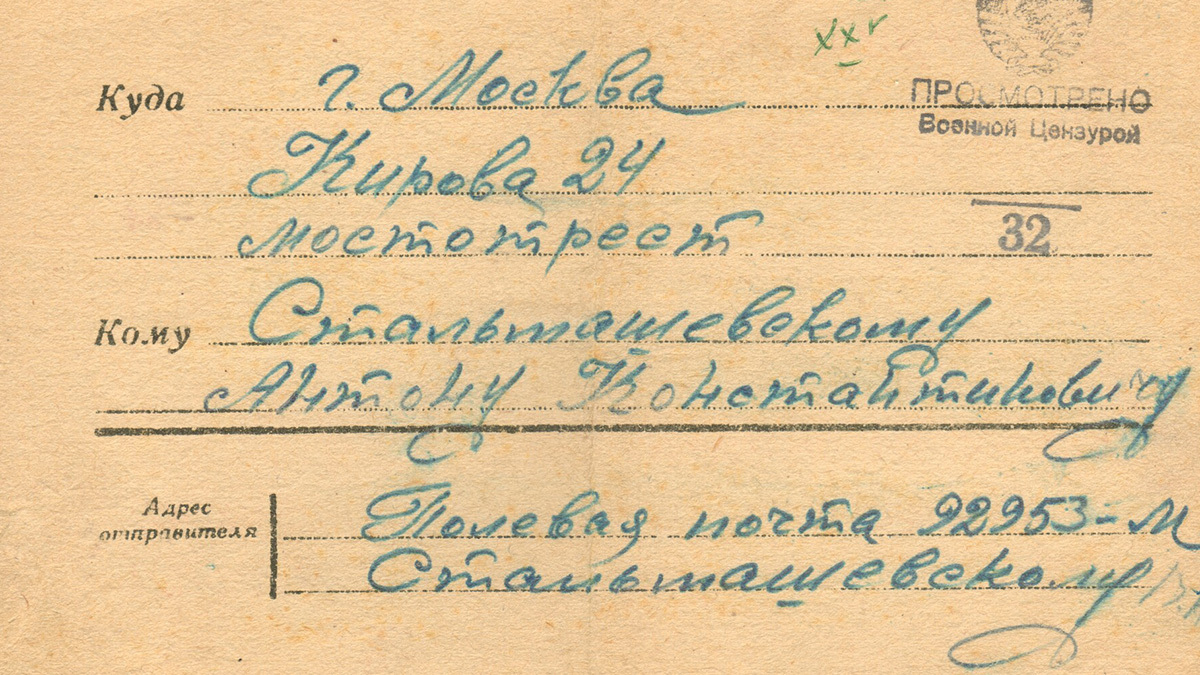 Куда г. Москва
ПРОСМОТРЕНО
Военной Цензурой
Кирова 24
32
мостотрест
Кому Стальташевскому
Антону Константиновичу
Адрес отправителя Полевая почта 92953-М
Стальташевскому